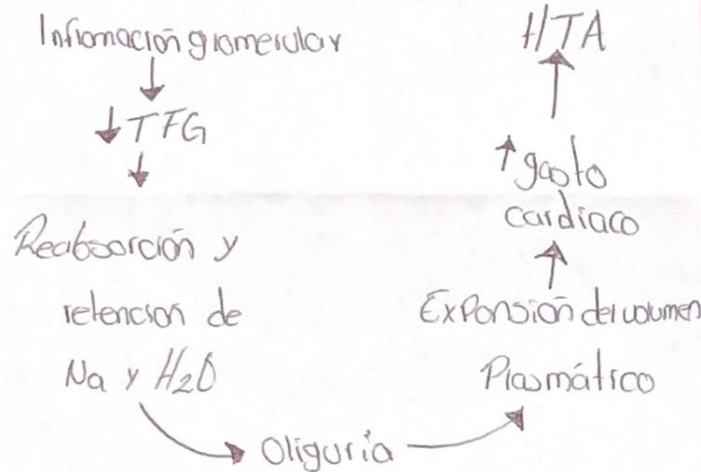 Inflamación glomerular
↓TFG
Reabsorción y
retención de
Na y H2O
Oliguria
Expansión del volumen
Plasmático
↑gasto
cardiaco
HTA